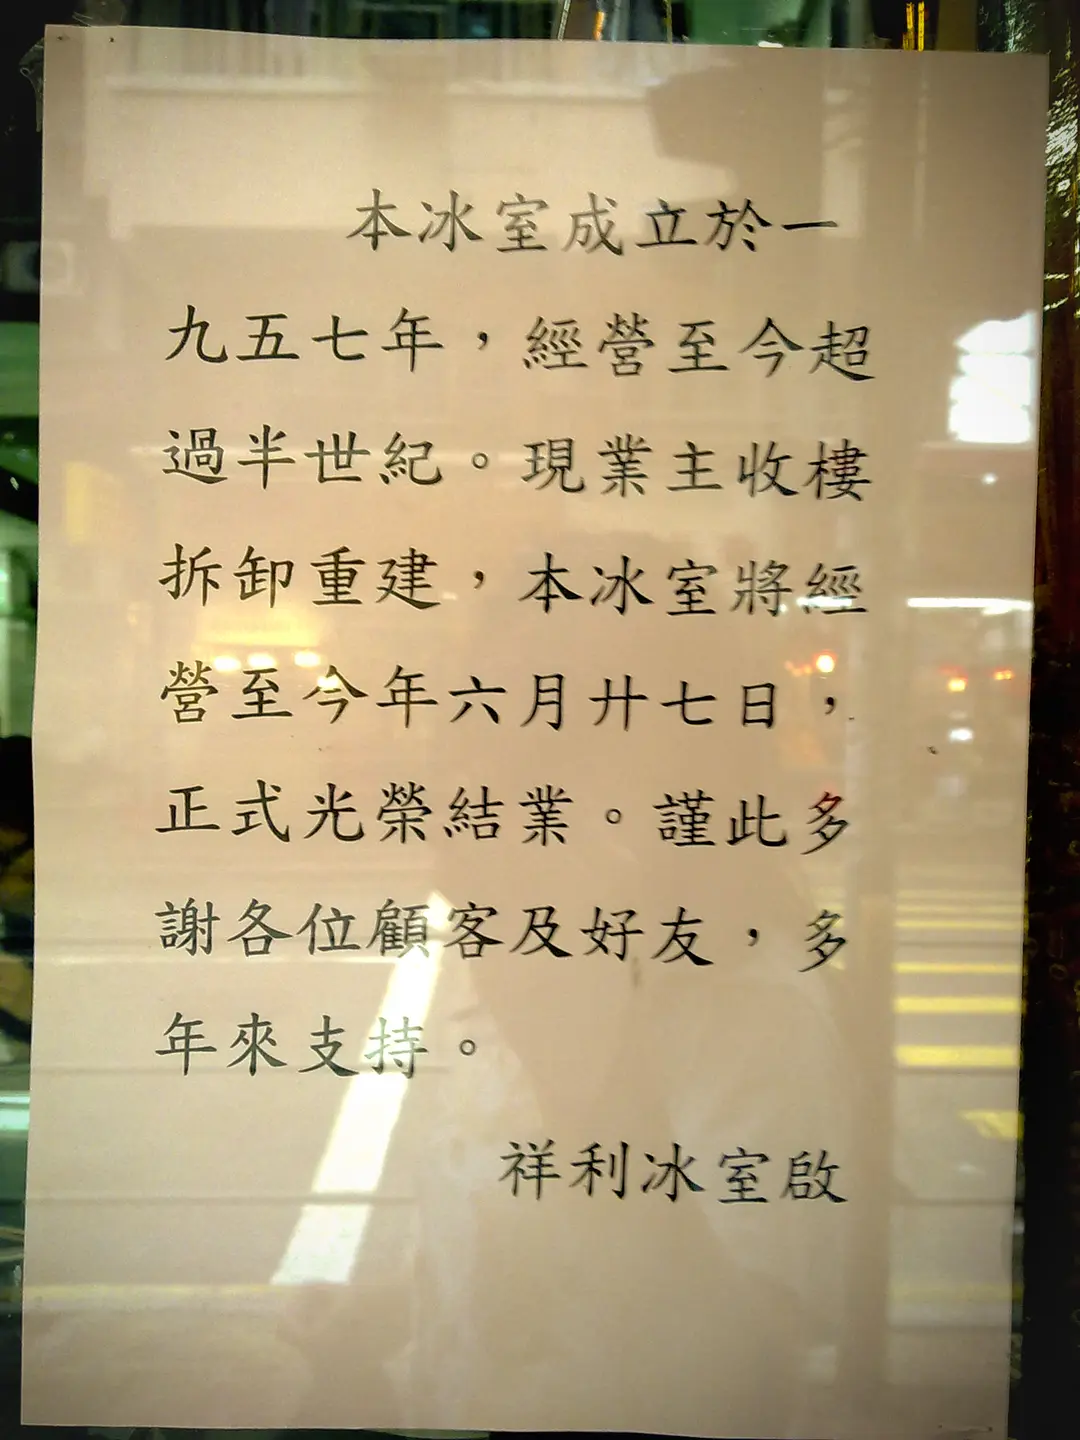 本冰室成立於一
九五七年，經營至今超
過半世紀。現業主收樓
拆卸重建，本冰室將經
營至今年六月廿七日，
正式光榮結業。謹此多
謝各位顧客及好友，多
年來支持。
祥利冰室啟